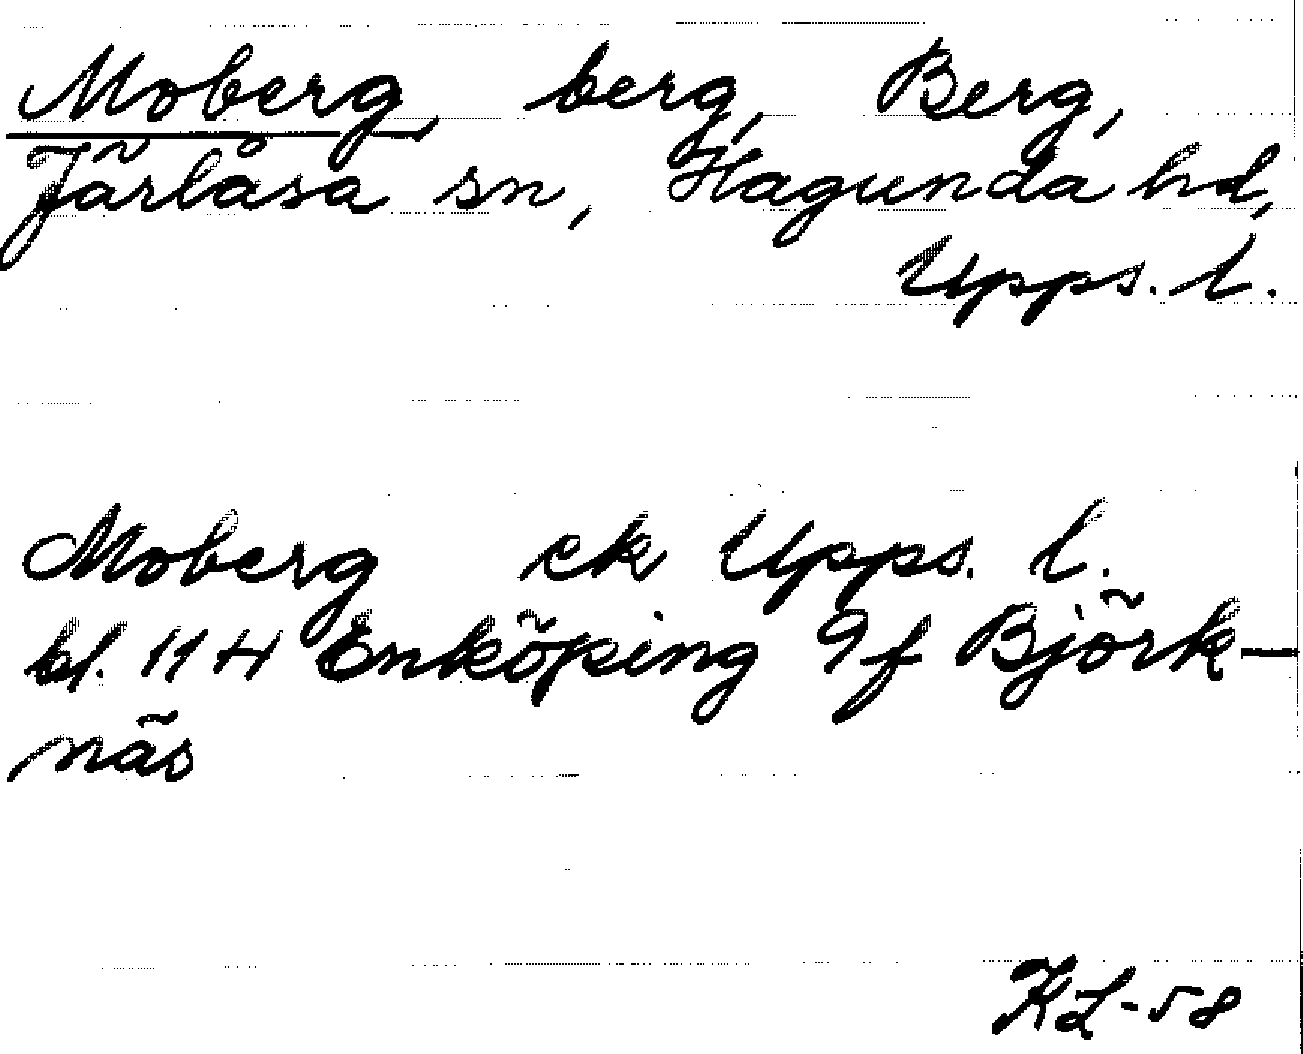 Moberg, berg, Berg,
Järlåsa sn, Hagunda hd,
Upps. l.
Moberg ek Upps. l.
bl. 11 H Enköping 9 f Björk-
näs
KL-58